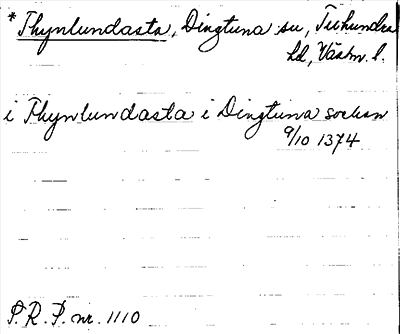 * Thynlundasta, Dingtuna sn, Tuhundra
hd, Västm. l.
i Thynlundasta i Dingtuna sochan
9/10 1374
P. R. P. nr. 1110